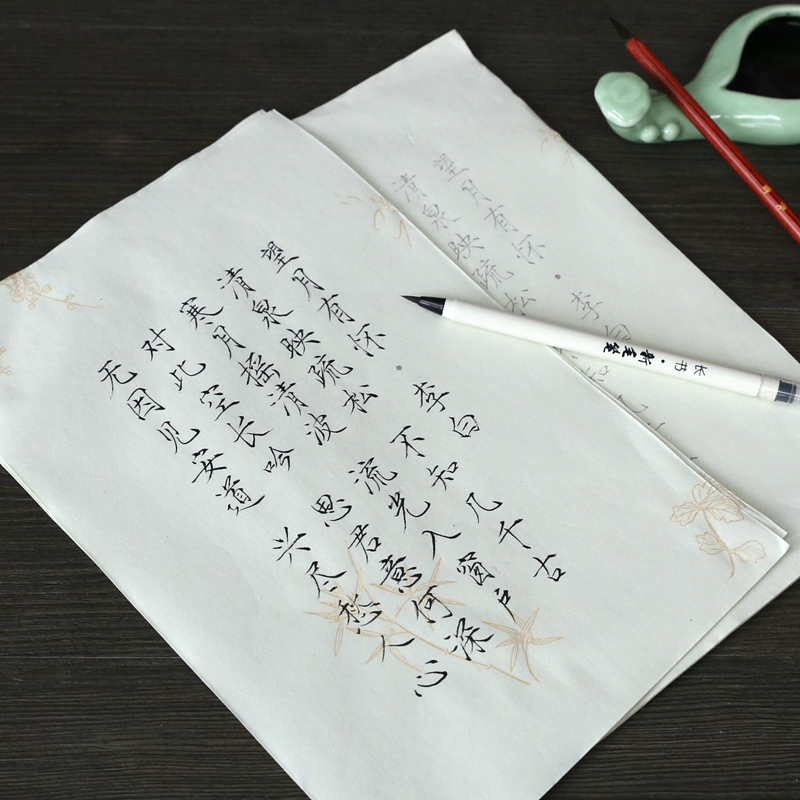 望月有怀·李白
清泉映疏松 不知几千古
寒月摇清波 流光入窗户
对此空长吟 思君意何深
无因见安道 兴尽愁人心
望月有怀·李白
清泉映疏松